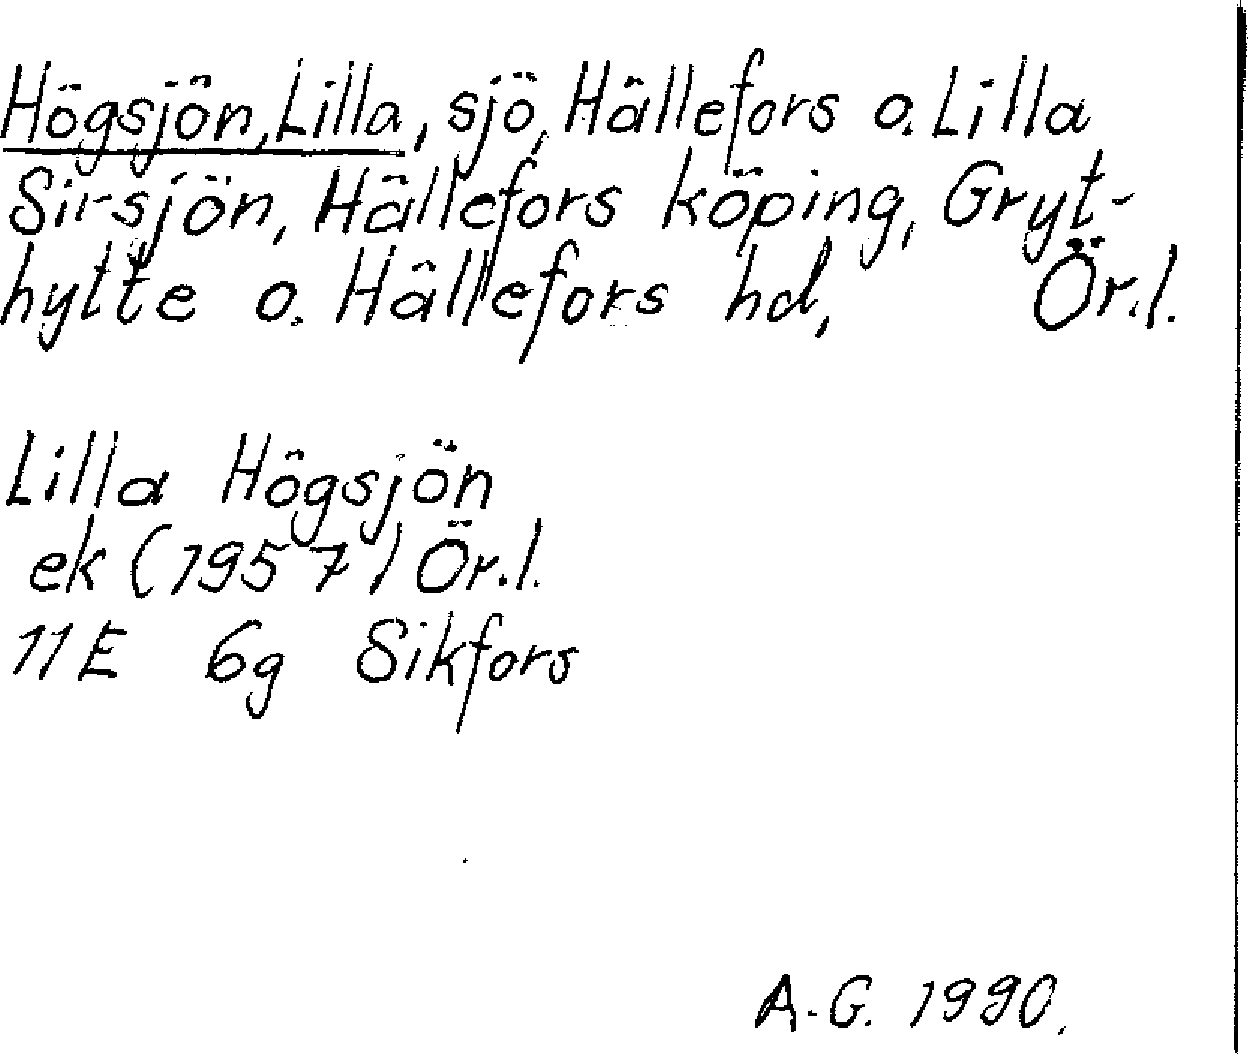 Högsjön, Lilla, sjö, Hällefors o. Lilla
Sirsjön, Hällefors köping, Gryt-
hytte o. Hällefors hd, Ör.l.
Lilla Högsjön
ek (1957) Ör.l.
11E 6g Sikfors
A.G. 1990.